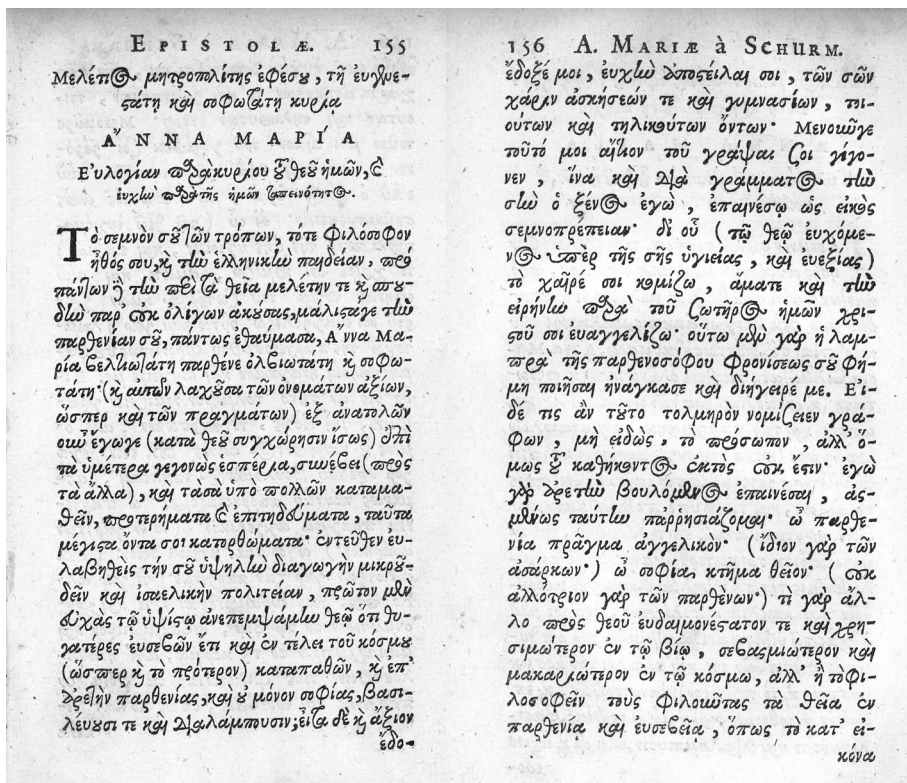 EPISTOLÆ. 155
Μελέτιος μητροπολίτης ἐφέσου, τῇ εὐγενε-
στάτῃ καὶ σοφωτάτῃ κυρία
ἌΝΝΑ ΜΑΡΊΑ
Εὐλογίαν παρὰ κυρίου τοῦ θεοῦ ἡμῶν, καὶ
εὐχὴν παρὰ τῆς ἡμῶν ταπεινότητος.
Τὸ σεμνὸν σοῦ τῶν τρόπων, τότε φιλόσοφον
ἦθός σου, καὶ τὴν ἑλληνικὴν παιδείαν, πρὸ
πάντων δὲ τὴν περὶ τὰ θεῖα μελέτην τε καὶ σπου-
δὴν παρ' οὐκ ὀλίγων ἀκούσας, μάλιστάγε τὴν
παρθενίαν σοῦ, πάντως ἐθαύμασα, Ἄννα Μα-
ρία βελτιωτάτη παρθένε ὀλβιωτάτη καὶ σοφω-
τάτη· (καὶ αὐτῶν λαχοῦσα τῶν ὀνομάτων ἀξίων,
ὥσπερ καὶ τῶν πραγμάτων) ἐξ ἀνατολῶν
οὖν ἔγωγε (κατὰ θεοῦ συγχώρησιν ἴσως) ἐπὶ
τὰ ὑμέτερα γεγονὼς ἑσπέρια, συνέβει (πρὸς
τὰ ἄλλα), καὶ τὰ σὰ ὑπὸ πολλῶν καταμα-
θεῖν, προτερήματα καὶ ἐπιτηδεύματα, ταῦτα
μέγιστα ὄντα σοι κατορθώματα· ἐντεῦθεν εὐ-
λαβηθεὶς τήν σου ὑψηλὴν διαγωγὴν μικροῦ-
δεῖν καὶ ἰσαελικὴν πολιτείαν, πρῶτον μὲν
εὐχὰς τῷ ὑψίστῳ ἀνεπεμψάμην θεῷ ὅτι θυ-
γατέρες εὐσεβῶν ἔτι καὶ ἐν τέλει τοῦ κόσμου
(ὥσπερ καὶ τὸ πρότερον) καταπαθῶν, καὶ ἐπ'
ἀρετὴν παρθενίας, καὶ οὐ μόνον σοφίας, βασι-
λεύουσι τε καὶ διαλάμπουσιν; εἶτα δὲ καὶ ἄξιον
ἔδο-
156 A. MARIÆ à SCHURM.
ἔδοξέ μοι, εὐχὴν ἀποστεῖλαι σοι, τῶν σῶν
χάριν ἀσκήσεών τε καὶ γυμνασίων, τοι-
ούτων καὶ τηλικούτων ὄντων· Μενοῦνγε
τοῦτό μοι αἴτιον τοῦ γράψαι σοι γέγο-
νεν, ἵνα καὶ διὰ γράμματος τὴν
σὴν ὁ ξένος ἐγὼ, ἐπαινέσω ὡς εἰκὸς
σεμνοπρέπειαν· δι οὗ (τῷ θεῷ εὐχόμε-
νος ὑπὲρ τῆς σῆς ὑγιείας, καὶ εὐεξίας)
τὸ χαῖρέ σοι κομίζω, ἅματε καὶ τὴν
εἰρήνην παρὰ τοῦ Σωτῆρος ἡμῶν χρι-
στοῦ σοι εὐαγγελίζω· οὕτω μὲν γὰρ ἡ λαμ-
πρὰ τῆς παρθενοσόφου φρονίσεως σοῦ φή-
μη ποιῆσαι ἠνάγκασε καὶ διήγειρέ με. Εἰ-
δέ τις ἂν τοῦτο τολμηρὸν νομίζειεν γρά-
φων, μὴ εἰδὼς, τὸ πρόσωπον, ἀλλ' ὅ-
μως τοῦ καθήκοντος ἐκτὸς οὐκ ἔστιν· ἐγὼ
γὰρ ἀρετὴν βουλόμενος ἐπαινέσαι, ἀσ-
μένως ταύτην παῤῥησιάζομαι· ὦ παρθε-
νία πρᾶγμα ἀγγελικὸν· (ἴδιον γὰρ τῶν
ἀσάρκων·) ὦ σοφία κτῆμα θεῖον· (οὐκ
ἀλλότριον γὰρ τῶν παρθένων·) τὶ γὰρ ἄλ-
λο πρὸς θεοῦ ευδαιμονέστατον τε καὶ χρη-
σιμώτερον ἐν τῷ βίῳ, σεβασμιώτερον καὶ
μακαριώτερον ἐν τῷ κόσμω, ἀλλ' ἢ τὸ φι-
λοσοφεῖν τοὺς φιλοῦντας τὰ θεῖα ἐν
παρθενίᾳ καὶ εὐσεβεῖᾳ, ὅπως τὸ κατ' εἰ-
κόνα